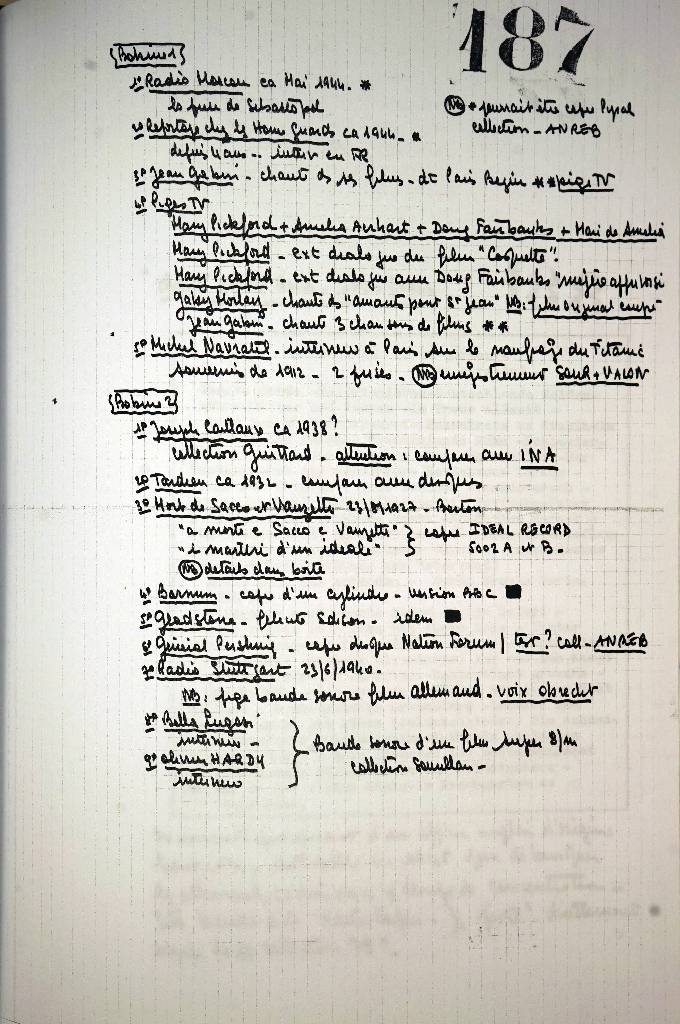 187
Bobine 1
1° Radio Moscou ca Mai 1944. *
la prise de Sébastopol
NB * pourrait être copie Pyral
collection - ANREB
2° Reportage chez les Home Guards ca 1944 - *
depuis 4 ans .. interv en FR
3° Jean Gabin - chante ds ses films - dt Paris Begin ** pige TV
4° Piges TV
Mary Pickford + Amelia Aerhart + Doug Fairbanks + Mari de Amelia
Mary Pickford - ext dialogue du film "Coquette".
Mary Pickford - ext dialogue avec Doug Fairbanks "mégère apprivoisé
Gaby Morlay - chante ds "amants pont St Jean" NB: film original coupé
Jean Gabin - chante 3 chansons de films **
5° Michel Navratil - interview à Paris sur le naufrage du Titanic
Souvenirs de 1912 - 2 prises. NB enregistrement SOUR + VALON
Bobine 2
1° Joseph Caillaux ca 1938?
collection Guittard - attention : comparer avec INA
2° Tardieu ca 1932 - comparer avec disques
3° Mort de Sacco et Vanzetti 23/8/1927 - Boston
"a morte e Sacco e Vanzetti" } copie IDEAL RECORD
"i martiri d'un ideale" } 5002 A et B.
NB détails dans boîte
4° Barnum - copie d'un cylindre - version ABC
5° Gladstone - félicite Edison - idem
6° Général Pershing - copie disque Nation Forum / test? coll - ANREB
7° Radio Stuttgart 23/6/1940.
NB: pige bande sonore film allemand - voix Obrecht
8° Bella Lugosi
interview -
9° Oliver HARDY
interview
} Bande sonore d'un film super 8/m
collection -